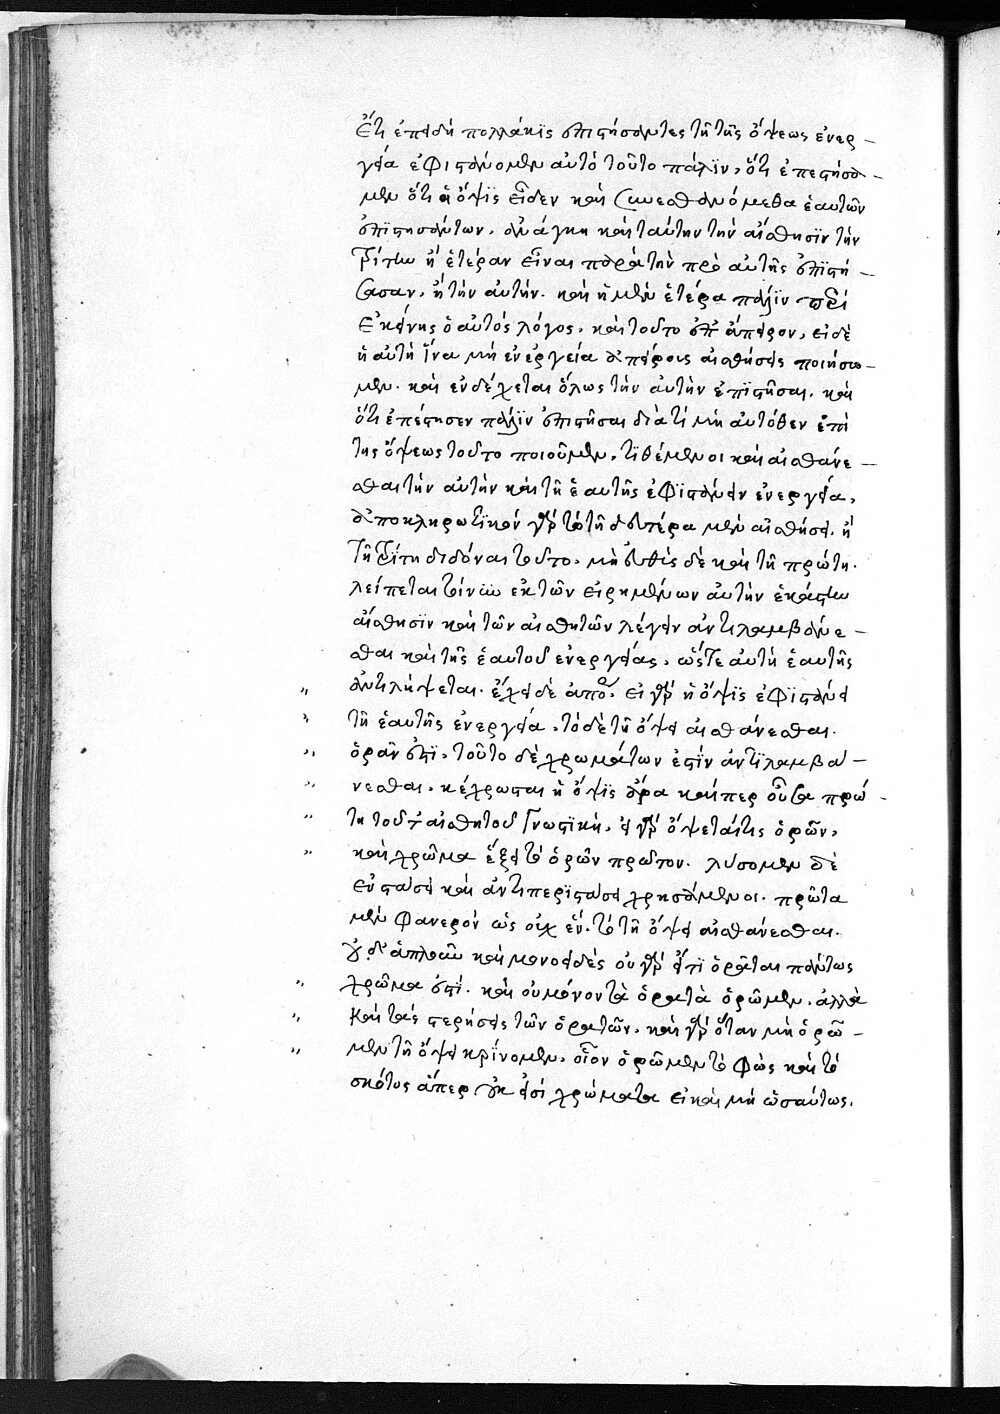 Ἔτι ἐπειδὴ πολλάκις ἐπιστήσαντες τῇ τῆς ὄψεως ἐνερ-
γείᾳ ἐφιστάνομεν αὐτὸ τοῦτο πάλιν, ὅτι ἐπεστήσα-
μεν ὅτι ἡ ὄψις εἶδεν καὶ συνεαθανόμεθα ἑαυτῶν
ἐπιστησάντων, ἀνάγκη καὶ ταύτην τὴν αἴσθησιν τὴν
τρίτην ἢ ἑτέραν εἶναι παρὰ τὴν πρὸ αὐτῆς ἐπιστή-
σασαν, ἢ τὴν αὐτήν. καὶ ἡ μὲν ἑτέρα πάλιν περὶ
ἐκείνης ὁ αὐτὸς λόγος, καὶ τοῦτο ἐπ' ἄπειρον, εἰ δὲ
ἡ αὐτὴ ἵνα μὴ ἐνεργεία ἀπείροις αἰσθήσεις ποιήσω-
μεν. καὶ ἐνδέχεται ὅλως τὴν αὐτὴν ἐπιστῆσαι. καὶ
ὅτι ἐπέστησεν πάλιν ἐπιστῆσαι διὰ τί μὴ αὐτόθεν ἐπὶ
τῆς ὄψεως τοῦτο ποιοῦμεν, τιθέμενοι καὶ αἰσθάνε-
σθαι τὴν αὐτὴν καὶ τῇ ἑαυτῆς ἐφιστάνειν ἐνεργείᾳ,
ἀποκληρωτικὸν γὰρ τὸ τῇ δευτέρα μὲν αἰσθήσει, ἢ
τῇ τρίτῃ διδόναι τοῦτο, μὴ εὐθὺς δὲ καὶ τῇ πρώτῃ.
λείπεται τοίνυν ἐκ τῶν εἰρημένων αὐτὴν ἑκάστην
αἴσθησιν καὶ τῶν αἰσθητῶν λέγειν ἀντιλαμβάνε-
σθαι καὶ τῆς ἑαυτοῦ ἐνεργείας, ὥστε αὐτὴ ἑαυτῆς
ἀντιλήψεται. ἔχει δὲ ἀπορ. εἰ γὰρ ἡ ὄψις ἐφιστάνει
τῇ ἑαυτῆς ἐνεργείᾳ, τὸ δὲ τῇ ὄψει αἰσθάνεσθαι.
ὁρᾶν ἐστι, τοῦτο δὲ χρωμάτων ἐστὶν ἀντιλαμβά-
νεσθαι. κέχρωσται ἡ ὄψις ἄρα καίπερ οὖσα πρώ-
τη τοῦ αἰσθητοῦ γνωστική, εἰ γὰρ ὄψεταί τις ὁρῶν,
καὶ χρῶμα ἕξει τὸ ὁρῶν πρῶτον. λύσομεν δὲ
ἐνστάσει καὶ ἀντιπεριστάσει χρησάμενοι. πρῶτα
μὲν φανερὸν ὡς οὐχ ἕν. τὸ τῇ ὄψει αἰσθάνεσθαι.
οὐδ' ἁπλοῦν καὶ μονοειδές οὐ γὰρ εἴ τι ὁρᾶται πάντως
χρῶμα ἐστί. καὶ οὐ μόνον τὰ ὁρατὰ ὁρῶμεν, ἀλλὰ
καὶ τὰς στερήσεις τῶν ὁρατῶν, καὶ γὰρ ὅταν μὴ ὁρῶ-
μεν τῇ ὄψει κρίνομεν, οἷον ὁρῶμεν τὸ φῶς καὶ τὸ
σκότος ἅπερ οὐκ εἰσὶ χρώματα εἰ καὶ μὴ ὡσαύτως.